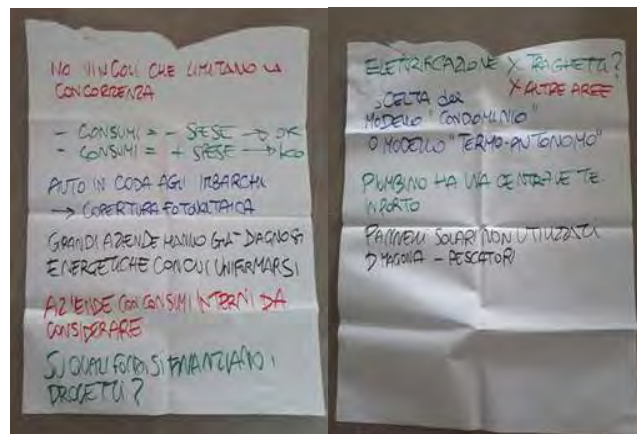 NO VINCOLI CHE LIMITANO LA
CONCORRENZA
- CONSUMI = - SPESE → OK
- CONSUMI = + SPESE → KO
AUTO IN CODA AGLI IMBARCHI
→ COPERTURA FOTOVOLTAICA
GRANDI AZIENDE HANNO GIA' DIAGNOSI
ENERGETICHE CON CUI UNIFORMARSI
AZIENDE CON CONSUMI INTERNI DA
CONSIDERARE
SU QUALI FONDI SI FINANZIANO I
PROGETTI?
ELETTRIFICAZIONE X TRAGHETTI?
X ALTRE AREE
SCELTA del
MODELLO "CONDOMINIO"
O MODELLO "TERMO-AUTONOMO"
PIOMBINO HA UNA CENTRALE TE.
IN PORTO
PANNELLI SOLARI NON UTILIZZATI
MAGONA - PESCATORI